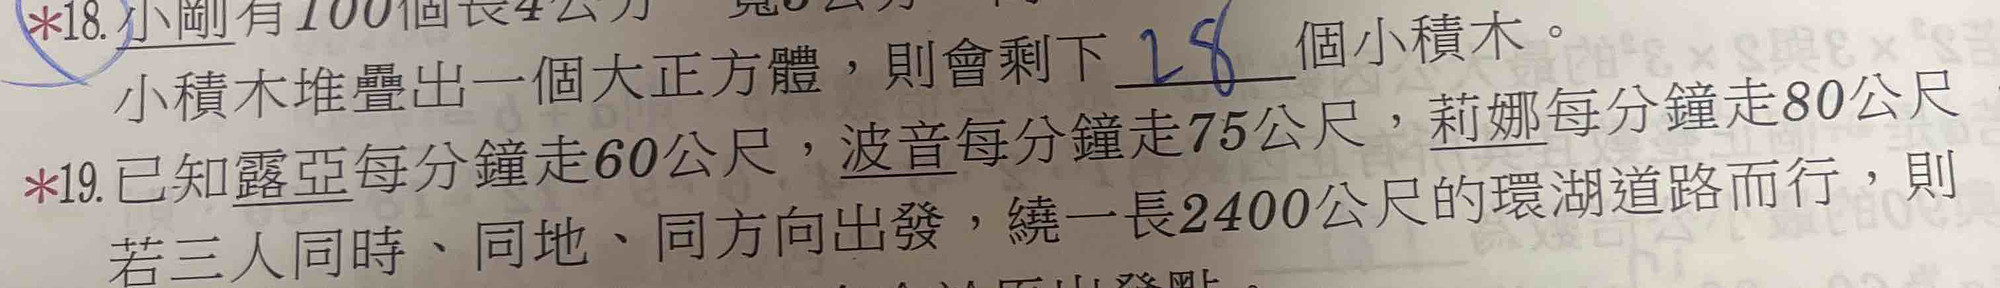 *18.小剛有100個長4公分
小積木堆疊出一個大正方體，則會剩下28個小積木。
*19.已知露亞每分鐘走60公尺，波音每分鐘走75公尺，莉娜每分鐘走80公尺
若三人同時、同地、同方向出發，繞一長2400公尺的環湖道路而行，則